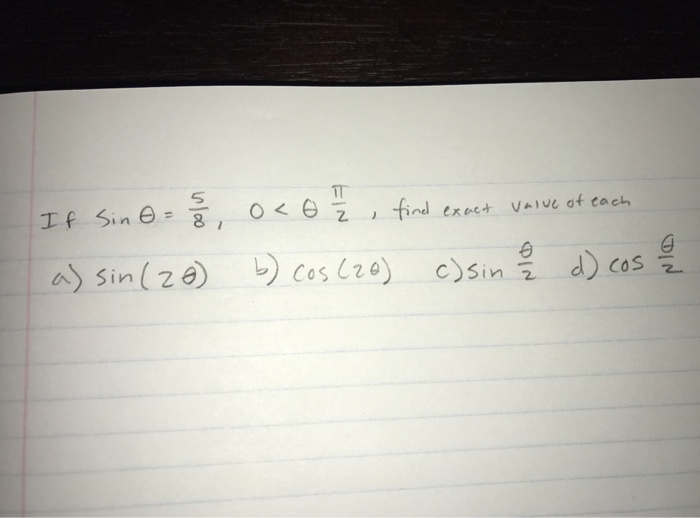 If Sin θ = 5/8, 0 < θ π/2, find exact value of each
a) sin(2θ) b) cos(2θ) c) sin θ/2 d) cos θ/2